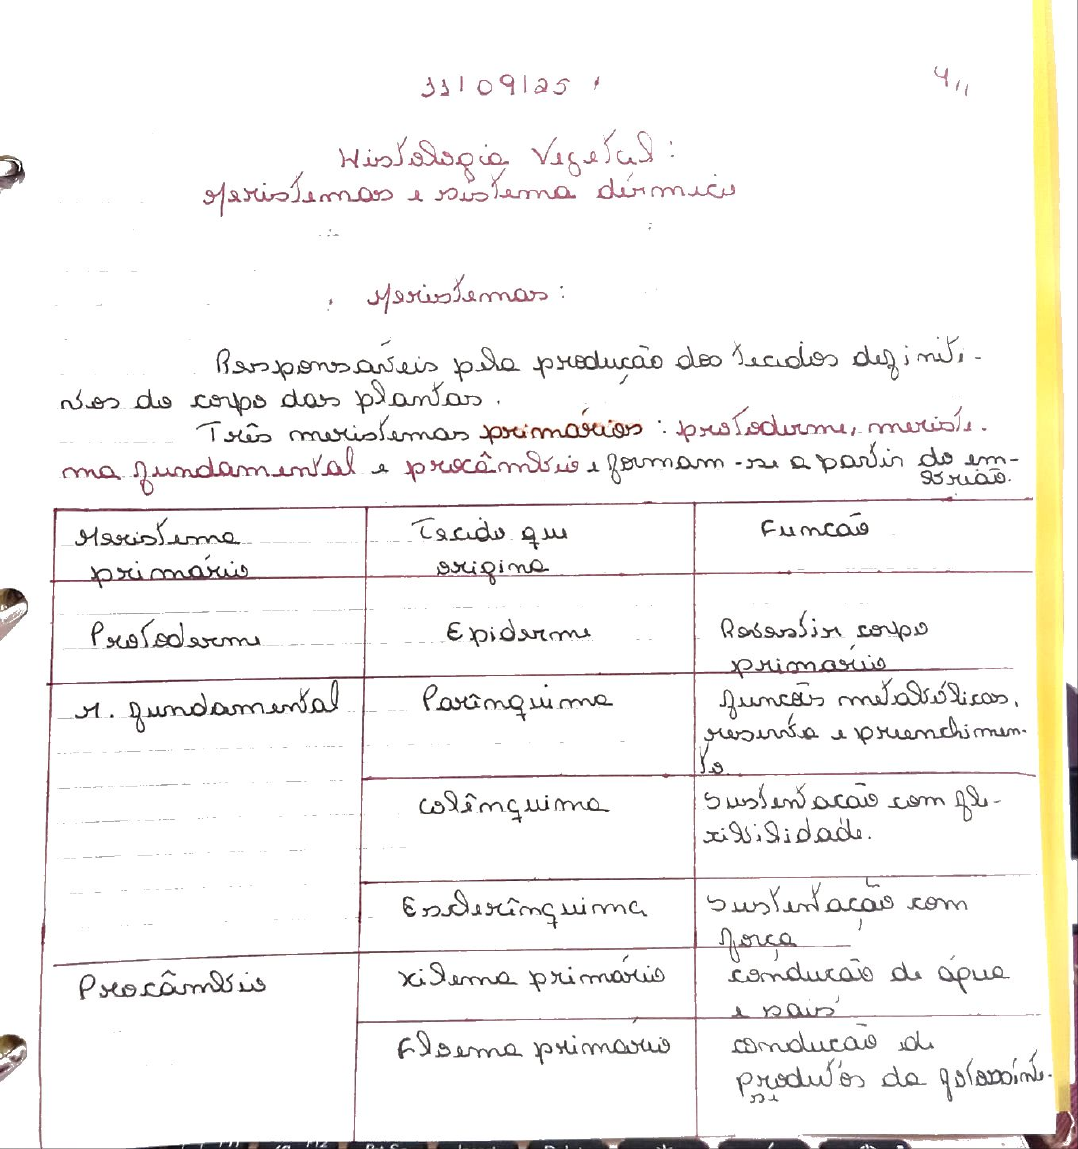 11/09/25
4,,
Histologia Vegetal:
Meristemas e sistema dérmico
Meristemas:
Responsáveis pela produção dos tecidos definiti-
vos do corpo das plantas.
Três meristemas primários: protoderme, meriste-
ma fundamental e procâmbio e formam-se a partir do em-
brião.
Meristema
primário
Tecido que
origina
Funcão
Protoderme
Epiderme
Revestir corpo
primário
M. fundamental
Parênquima
funcões metabólicas,
reserva e preenchimen-
to
Colênquima
Sustentacão com fle-
xibilidade.
Esclerênquima
Sustentação com
força
Procâmbio
Xilema primário
conducão de água
e sais
Floema primário
conducão de
produtos da fotossínte-
se